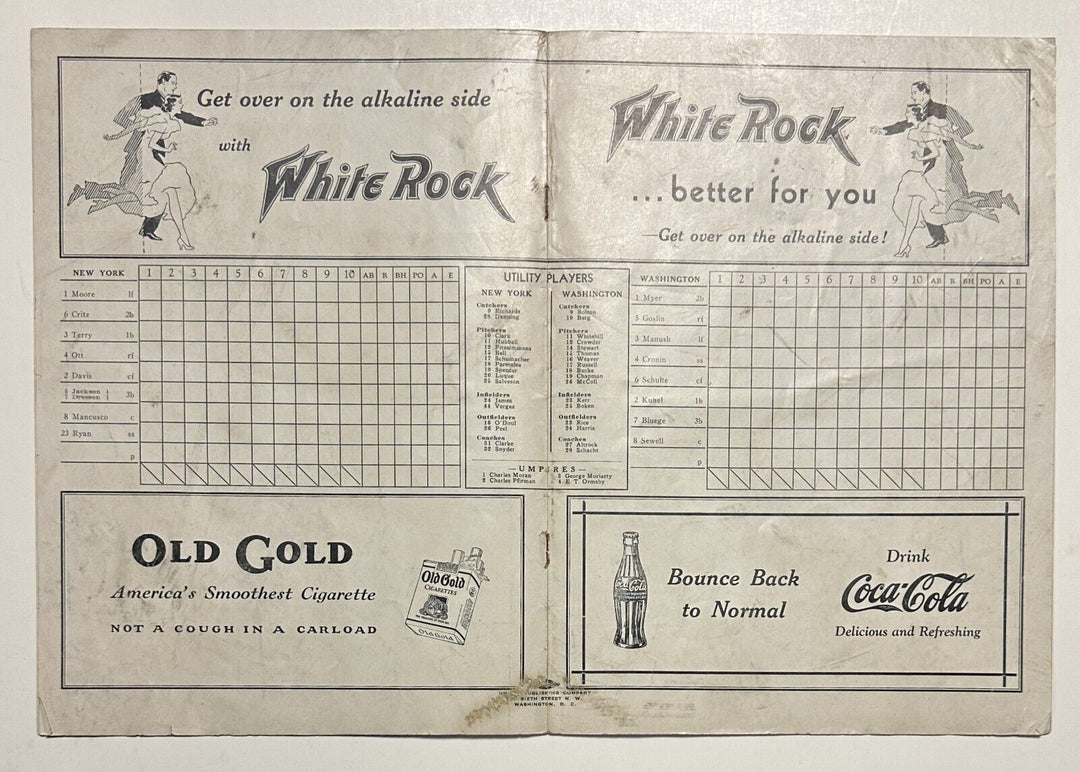 Get over on the alkaline side
with
White Rock
White Rock
...better for you
—Get over on the alkaline side!
NEW YORK 1 2 3 4 5 6 7 8 9 10 AB R BH PO A E
1 Moore lf
6 Critz 2b
3 Terry 1b
4 Ott rf
2 Davis cf
Jackson
Dressen 3b
8 Mancusco c
23 Ryan ss
p
UTILITY PLAYERS
NEW YORK
Catchers
9 Richards
28 Danning
Pitchers
10 Clark
11 Hubbell
12 Fitzsimmons
15 Bell
17 Schumacher
18 Parmelee
19 Spencer
20 Luque
25 Salveson
Infielders
24 James
44 Vergez
Outfielders
16 O'Doul
26 Peel
Coaches
21 Clarke
22 Snyder
WASHINGTON
Catchers
9 Bolton
10 Berg
Pitchers
11 Whitehill
12 Crowder
14 Stewart
15 Thomas
16 Weaver
17 Russell
18 Burke
19 Chapman
26 McColl
Infielders
23 Kerr
25 Boken
Outfielders
22 Rice
24 Harris
Coaches
27 Altrock
28 Schacht
—UMPIRES—
1 Charles Moran
2 Charles Pfirman
3 George Moriarty
4 E. T. Ormsby
WASHINGTON 1 2 3 4 5 6 7 8 9 10 AB R BH PO A E
1 Myer 2b
5 Goslin rf
3 Manush lf
4 Cronin ss
6 Schulte cf
2 Kuhel 1b
7 Bluege 3b
8 Sewell c
p
OLD GOLD
America's Smoothest Cigarette
NOT A COUGH IN A CARLOAD
Old Gold
CIGARETTES
Old Gold
Bounce Back
to Normal
Drink
Coca-Cola
Delicious and Refreshing
PUBLISHING COMPANY
SIXTH STREET N. W.
WASHINGTON, D. C.